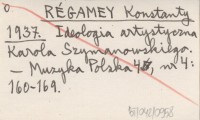 RÉGAMEY Konstanty
1937. Ideologia artystyczna
Karola Szymanowskiego.
— Muzyka Polska 4, nr 4:
160-169.